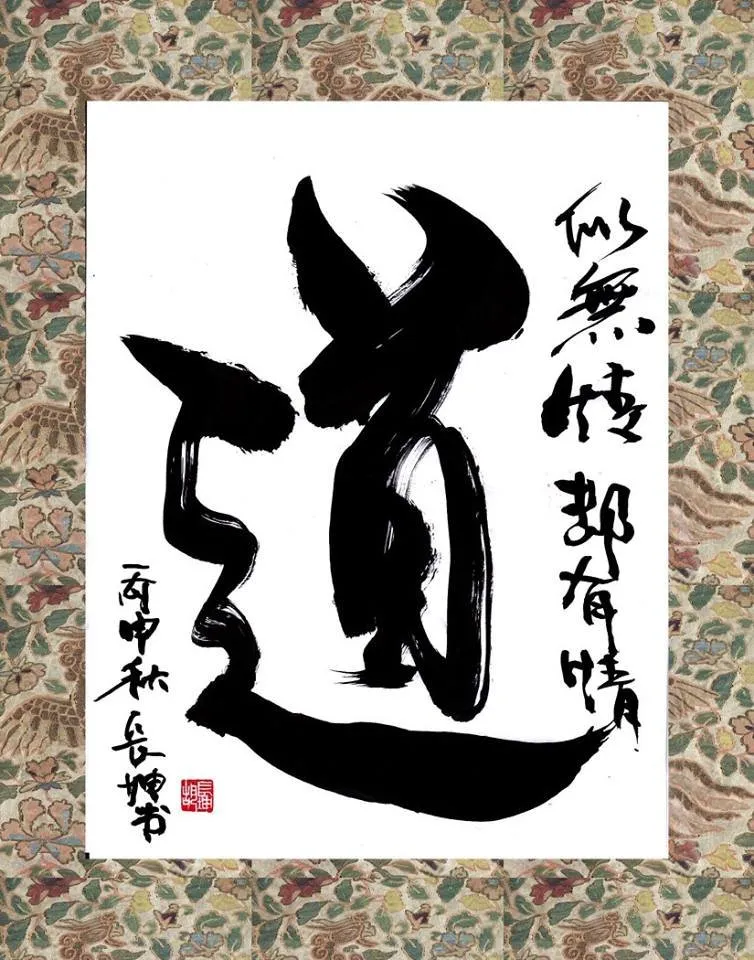 似無情 都有情
道
丙申秋 長坤书